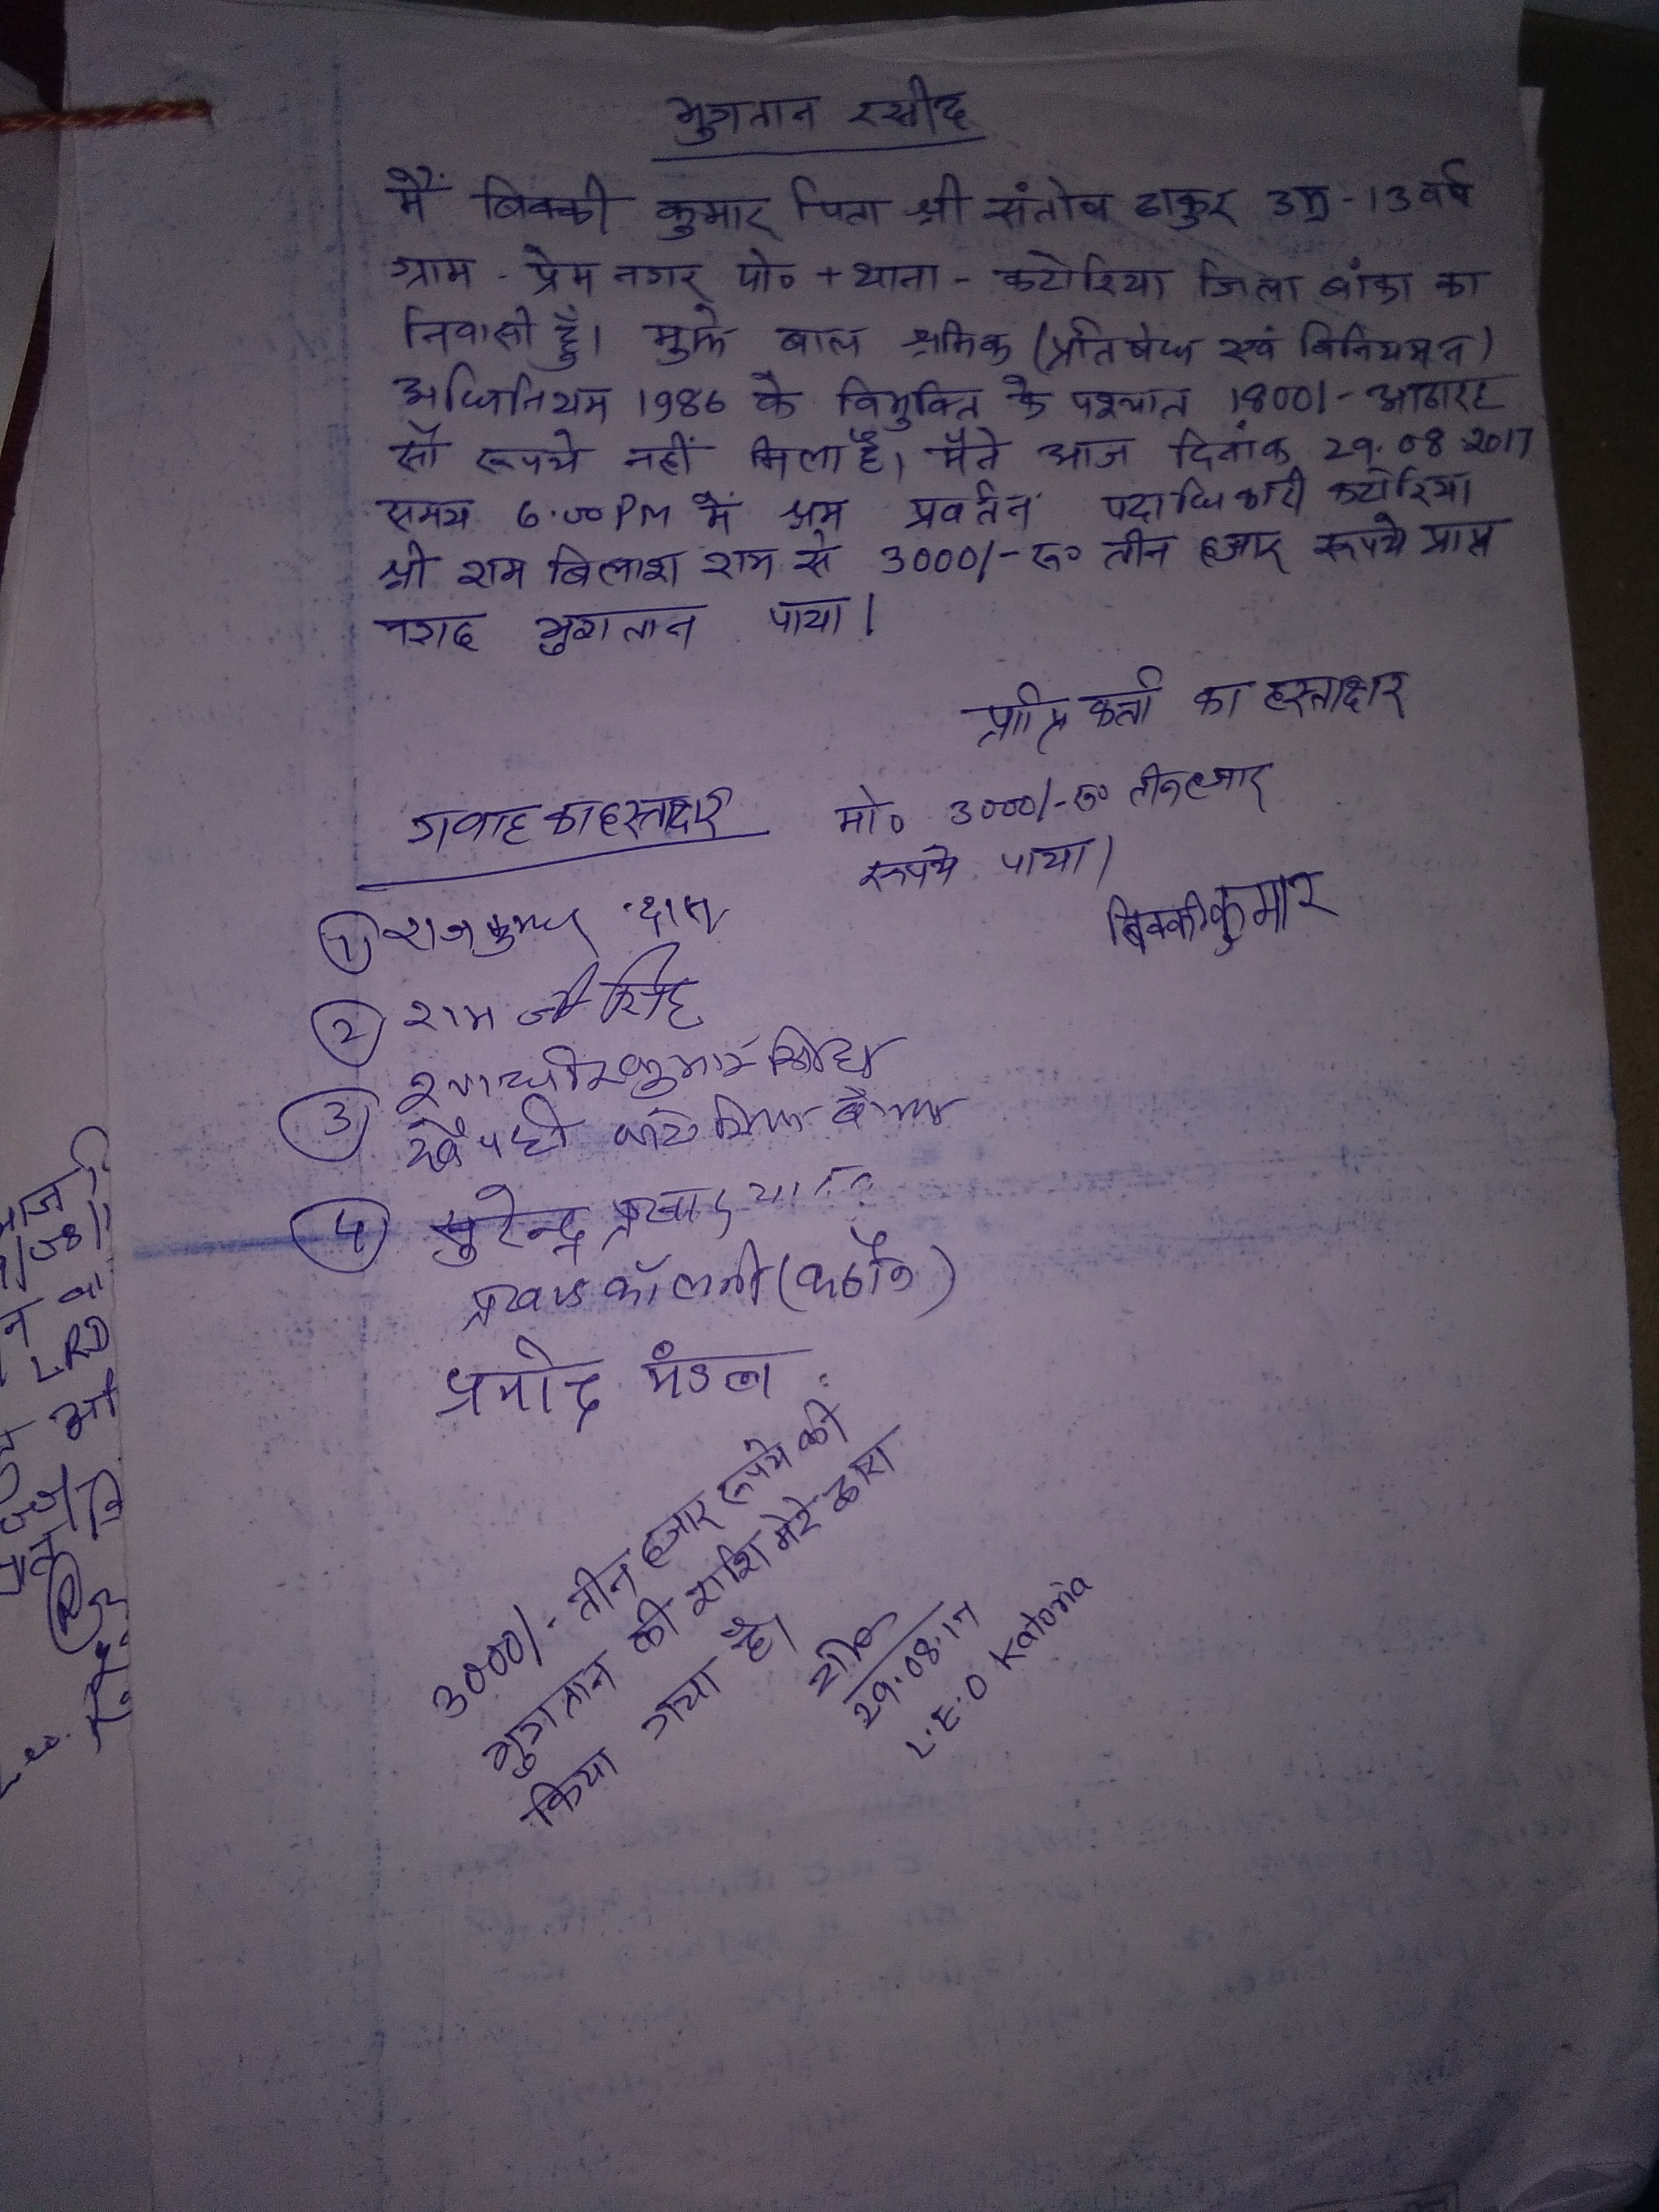 भुगतान रसीद
मैं बिक्की कुमार पिता श्री संतोष ठाकुर उम्र - 13 वर्ष
ग्राम - प्रेम नगर पो० + थाना - कटोरिया जिला बांका का
निवासी हूँ। मुझे बाल श्रमिक (प्रतिषेध एवं विनियमन)
अधिनियम 1986 के विमुक्ति के पश्चात 1800/- अठारह
सौ रूपये नहीं मिला है, मैंने आज दिनांक 29.08.2017
समय 6.00 PM में श्रम प्रवर्तन पदाधिकारी कटोरिया
श्री राम बिलाश राम से 3000/- रू० तीन हजार रूपये प्राप्त
नगद भुगतान पाया।
प्राप्ति कर्ता का हस्ताक्षर
गवाह का हस्ताक्षर
मो० 3000/- रू० तीन हजार
रूपये पाया।
बिक्की कुमार
1 राजकुमार दास
2 राम जी सिंह
3 कुमार
4 सुरेन्द्र प्रसाद
प्रखण्ड कॉलनी
प्रमोद मंडल
3000/- तीन हजार रूपये की
भुगतान की राशि मेरे द्वारा
किया गया है।
29.08.17
L.E.O Katoria